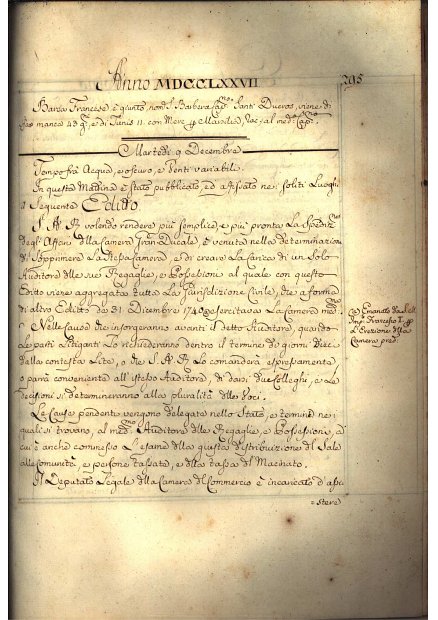 Anno MDCCLXXVII
295
Barca Francese è giunto, nom.
manca 43 g. e di Tunis 11. con Merc.
Martedì 9 Decembre
Tempo frà Acqua, e oscuro, e Venti variabili.
In questa Mattina è stato pubblicato, ed affissato nei soliti Luoghi
il seguente Editto
S. A. R. volendo rendere più semplice, e più pronta La Spedizne
degl'Affari dlla Camera Gran Ducale, è venuta nella determinazne
di Sopprimere La stessa Camera, e di creare La Carica di un Solo
Auditore dlle sue Regaglie, e Possessioni al quale con questo
Editto viene aggregata tutta La Giurisdizione Civile, che a forma
di altro Editto de 31 Decembre 1740 (a) esercitava La Camera medma
Nelle Cause che insorgeranno avanti il detto Auditore, quando
Le parti Litiganti Lo richiederanno dentro il termine di giorni Dieci
dalla contesta Lite, o che S. A. R. Lo comanderà espressamente
o parrà conveniente all'istesso Auditore, di darsi due Colleghi, e Le
decisioni si determineranno alla pluralità dlle Voci.
Le Cause pendenti vengono delegate nello Stato, e termine nei
quali si trovano, al medmo Auditore dlle Regaglie, e Possessioni, a
cui è anche commesso L'esame dlla giusta distribuzione dl Sale
alle Comunità, e persone tassate, e dlla tassa dl Macinato.
Il Deputato Legale dlla Camera dl Commercio è incaricato d'assi
=stere
(a) Emanato da
Imp. Francesco I. p
L'Erezione dlla
Camera pred.